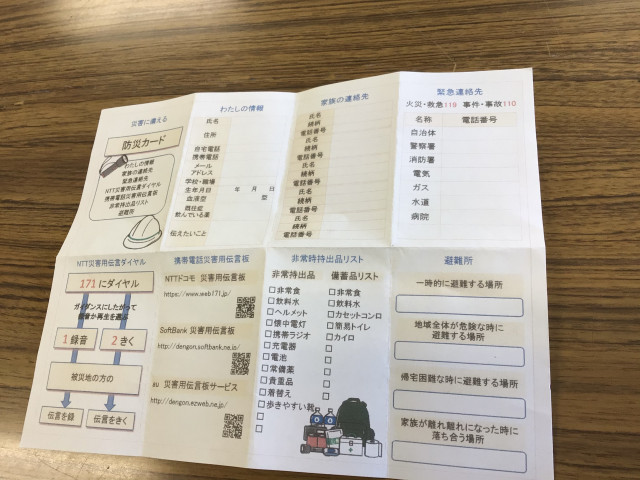 災害に備える
防災カード
わたしの情報
家族の連絡先
緊急連絡先
NTT災害用伝言ダイヤル
携帯電話災害用伝言板
非常持出品リスト
避難所
わたしの情報
氏名
住所
自宅電話
携帯電話
メール
アドレス
学校・職場
生年月日 年 月 日
血液型 型
既往症
飲んでいる薬
伝えたいこと
家族の連絡先
氏名
続柄
電話番号
氏名
続柄
電話番号
氏名
続柄
電話番号
氏名
続柄
電話番号
氏名
続柄
電話番号
緊急連絡先
火災・救急119 事件・事故110
名称 電話番号
自治体
警察署
消防署
電気
ガス
水道
病院
NTT災害用伝言ダイヤル
171にダイヤル
ガイダンスにしたがって
録音か再生を選ぶ
1録音 2きく
被災地の方の
伝言を録 伝言をきく
携帯電話災害用伝言板
NTTドコモ 災害用伝言板
https://www.web171.jp/
SoftBank 災害用伝言板
http://dengon.softbank.ne.jp/
au 災害用伝言板サービス
http://dengon.ezweb.ne.jp/
非常時持出品リスト
非常持出品
□非常食
□飲料水
□ヘルメット
□懐中電灯
□携帯ラジオ
□充電器
□電池
□常備薬
□貴重品
□着替え
□歩きやすい靴
□
□
備蓄品リスト
□非常食
□飲料水
□カセットコンロ
□簡易トイレ
□カイロ
□
□
□
避難所
一時的に避難する場所
地域全体が危険な時に
避難する場所
帰宅困難な時に避難する場所
家族が離れ離れになった時に
落ち合う場所